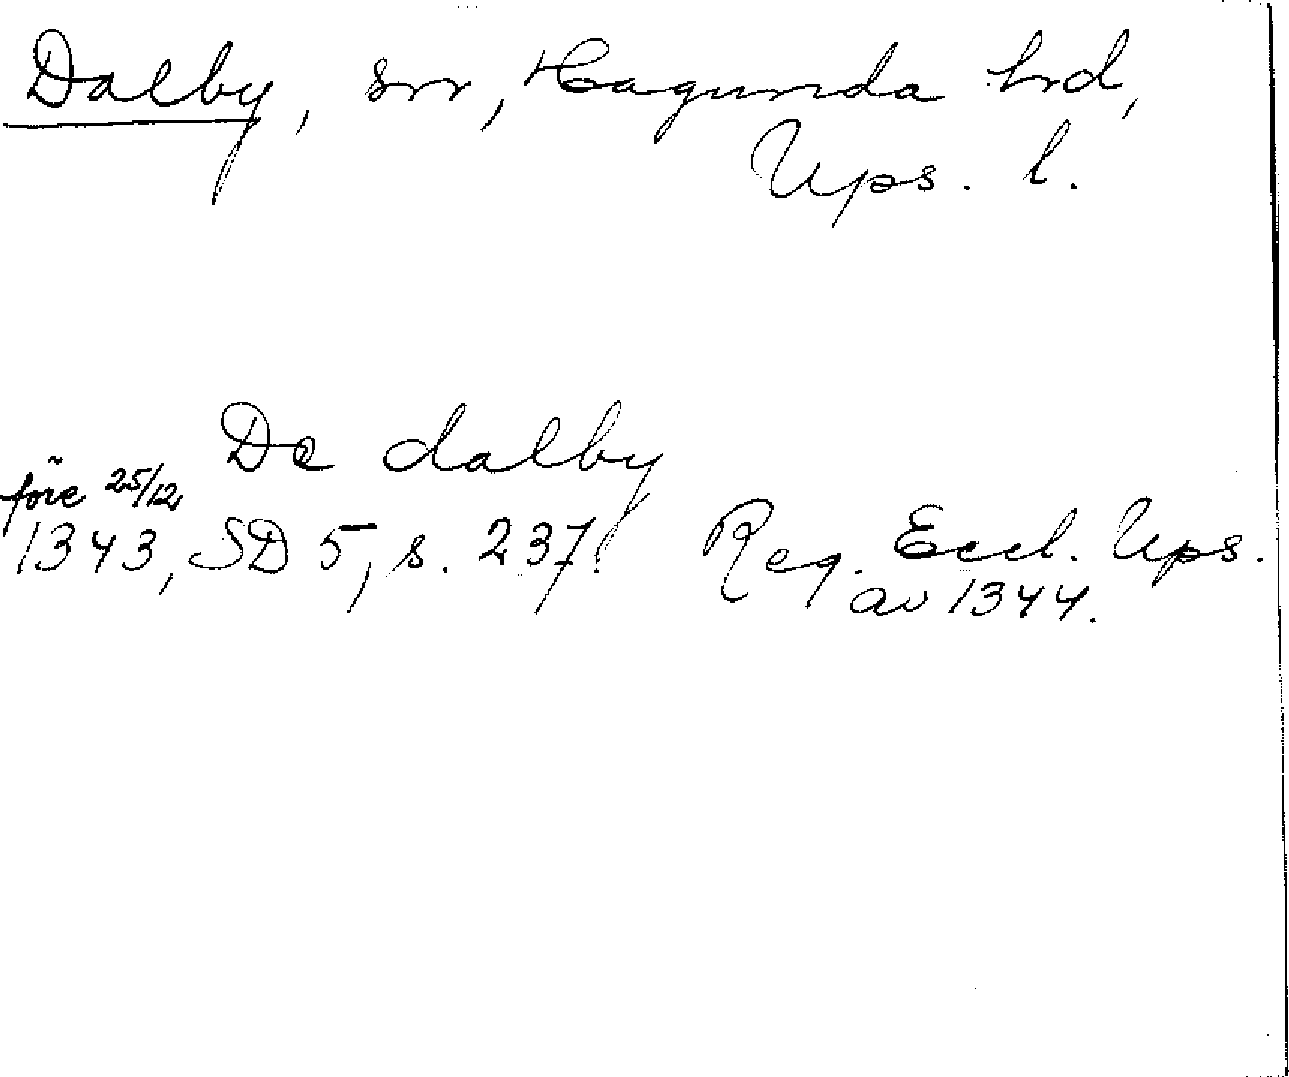 Dalby, sn, Hagunda hrd,
Ups. l.
De dalby
före 25/12
1343, SD 5, s. 237. Reg. Eccl. Ups.
av 1344.